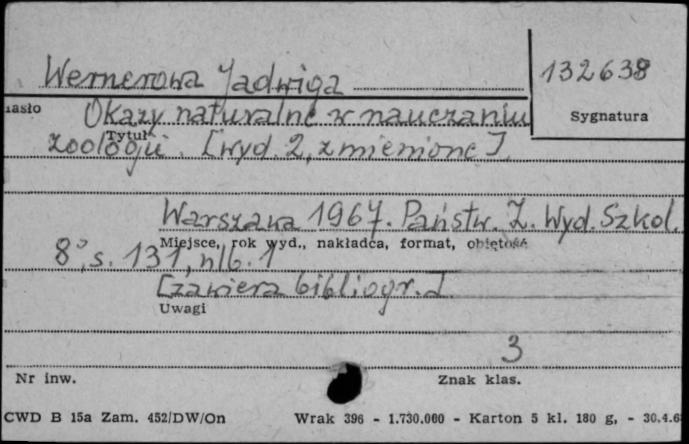 Wernerowa Jadwiga
132638
Sygnatura
Okazy naturalne w nauczaniu
Tytuł
zoologii. [wyd. 2, zmienione].
Warszawa 1967. Państw. Z. Wyd. Szkol.
Miejsce, rok wyd., nakładca, format, objętość
8°, s. 131, nlb. 1
[zawiera bibliogr.]
Uwagi
3
Nr inw.
Znak klas.
CWD B 15a Zam. 452/DW/On Wrak 396 - 1.730.000 - Karton 5 kl. 180 g, - 30.4.6